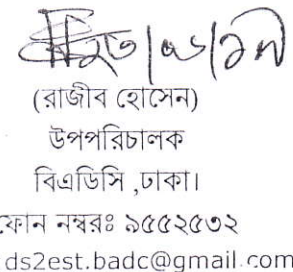 (রাজীব হোসেন)
উপপরিচালক
বিএডিসি ,ঢাকা।
ফোন নম্বরঃ ৯৫৫২৫৩২
ds2est.badc@gmail.com